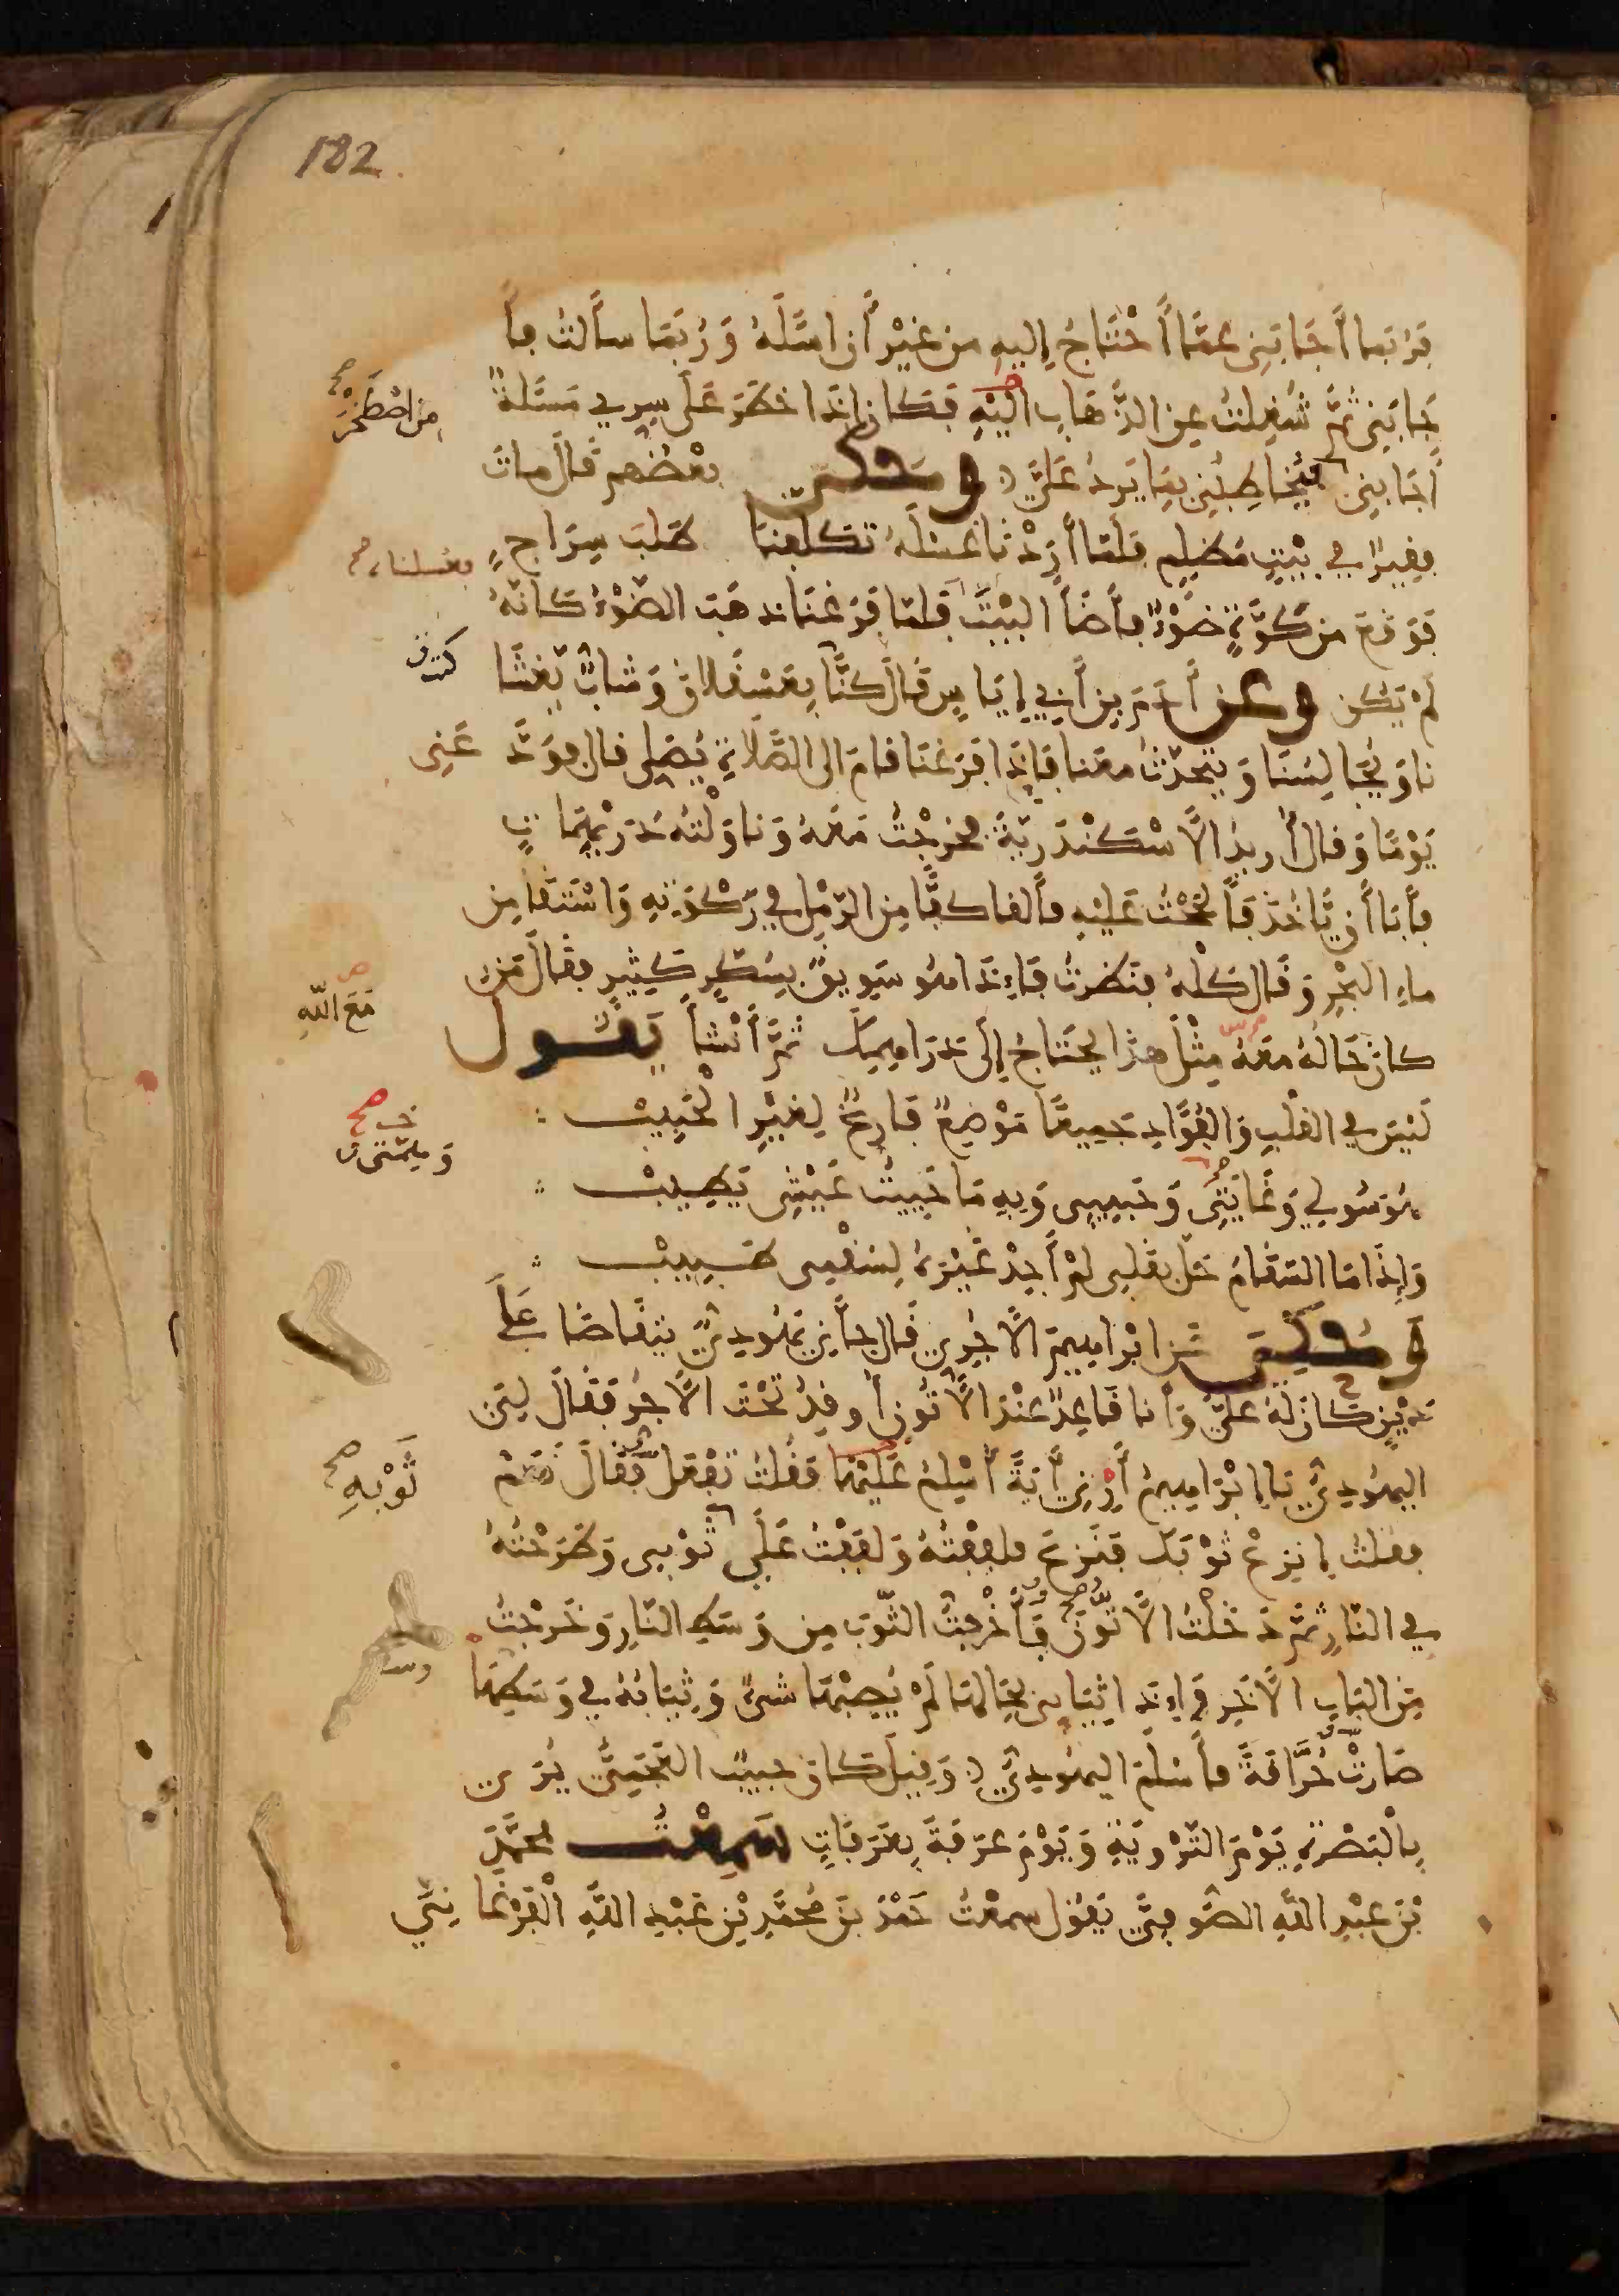 182
فربما أجابني عما أحتاج إليه من غير أن اسئله وربما سألت فأ
جابني ثم شغلت عن الذهاب اليه فكان إذا خطر على سري مسئلة
من اصطخر صح
أجابني فيخاطبني بما يرد علي وحكي بعضهم قال مات
فقير في بيت مظلم فلما أردنا غسله تكلفنا طلب سراج
بغسلنا صح
فوقع من كوة ضوء فأضأ البيت فلما فرغنا ذهب الضوء كانه
لم يكن وعن أدم بن أبي إياس قال كنا بعسقلان وشاب يغشا
نا ويجالسنا ويتحدث معنا فإذا فرغنا قام الى الصلاة يصلي قال فودعني
يوما وقال أريد الاسكندرية فخرجت معه وناولته دريهمات
فأبا أن يأخذ فألححت عليه فألقا كفا من الرمل في ركوته واستقا من
ماء البحر وقال كله فنظرت فإذا هو سويق بسكر كثير فقال من
مع الله
كان حاله معه مثل هذا يحتاج إلى دراهمك ثم أنشأ يقول
ليس في القلب والفؤاد جميعا موضع فارغ لغير الحبيب
ومنيتي خ صح
هو سولي وغايتي وحبيبي وبه ما حييت عيشي يطيب
وإذا ما السقام حل بقلبي لم أجد غيره لسقمي طبيب
وحكي عن ابراهيم الاجري قال جأني يهودي يتقاضا علي
دين كان له علي وأنا قاعد عند الأتون أوقد تحت الآجر فقال لي
اليهودي يا إبراهيم أرني أية أسلم عليها فقلت تفعل فقال نعم
ثوبه صح
فقلت انزع ثوبك فنزع فلففته ولففت على ثوبي وطرحته
في النار ثم دخلت الأتون فأخرجت الثوب من وسط النار وخرجت
من الباب الأخر فإذا ثيابي بحالها لم يصبها شيء وثيابه في وسطها
صارت حراقة فأسلم اليهودي وقيل كان حبيب العجمي يرى
بالبصرة يوم التروية ويوم عرفة بعرفات سمعت محمد
بن عبد الله الصوفي يقول سمعت حمد بن محمد بن عبد الله الفرغاني